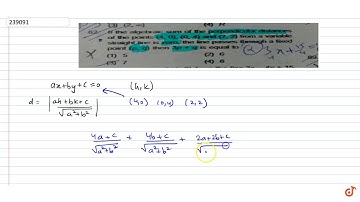 239091
(3) (2, ∞)
(4) R
82. If the algebraic sum of the perpendicular distances
of the points (4, 0), (0, 4) and (2, 2) from a variable
straight line is zero, the line passes through a fixed
point (p, q) then 3p + q is equal to
(1) 5 (2) 6
(3) 7 (4) 8
ax+by+c=0 (h,k)
d = |ah+bk+c / √a²+b²| (4,0) (0,4) (2,2)
4a+c / √a²+b² + 4b+c / √a²+b² + 2a+2b+c / √
doubtnut